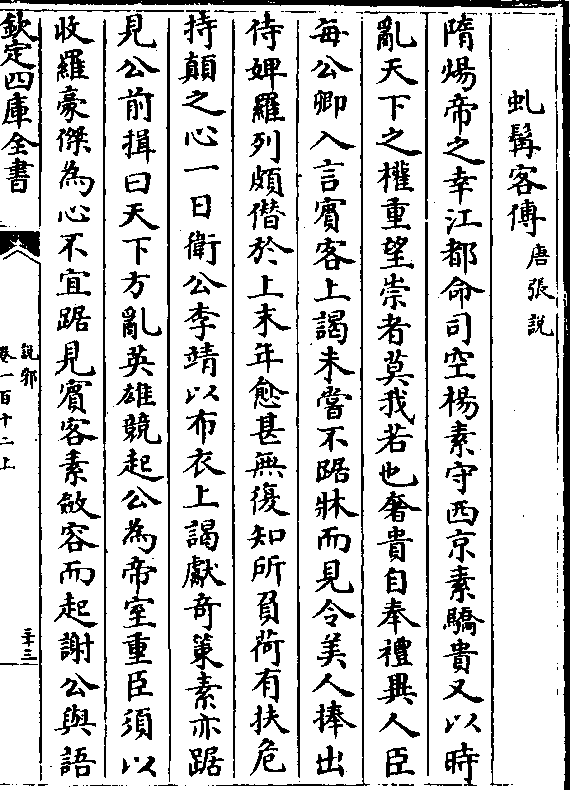 虬髯客傳 唐張說
隋煬帝之幸江都命司空楊素守西京素驕貴又以時
亂天下之權重望崇者莫我若也奢貴自奉禮異人臣
每公卿入言賓客上謁未嘗不踞牀而見令美人捧出
侍婢羅列頗僭於上末年愈甚無復知所負荷有扶危
持顛之心一日衛公李靖以布衣上謁獻奇策素亦踞
見公前揖曰天下方亂英雄競起公為帝室重臣須以
收羅豪傑為心不宜踞見賓客素斂容而起謝公與語
欽定四庫全書
說郛
卷一百十二上